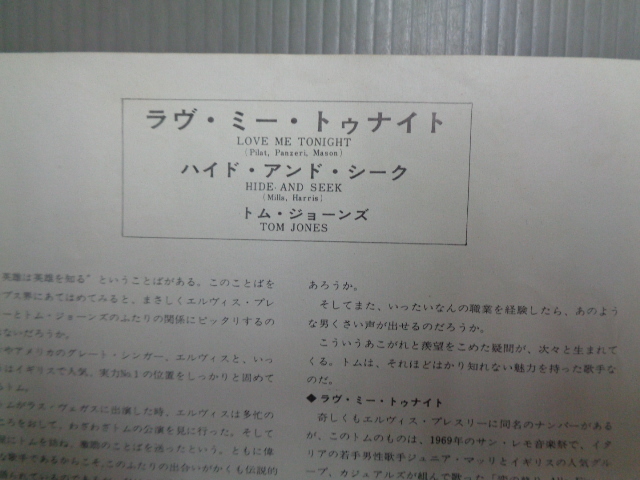 ラヴ・ミー・トゥナイト
LOVE ME TONIGHT
(Pilat, Panzeri, Mason)
ハイド・アンド・シーク
HIDE AND SEEK
(Mills, Harris)
トム・ジョーンズ
TOM JONES
英雄は英雄を知る”ということばがある。このことばを
プス界にあてはめてみると、まさしくエルヴィス・プレ
ーとトム・ジョーンズのふたりの関係にピッタリするの
ないだろうか。
やアメリカのグレート・シンガー、エルヴィスと、いっ
はイギリスで人気、実力No.1の位置をしっかりと固めて
トム。
トムがラス・ヴェガスに出演した時、エルヴィスは多忙の
ころをおして、わざわざトムの公演を見に行った。そして
にトムを訪ね、激励のことばを送ったという。ともに偉
な歌手であるからこそ、このふたりの出合いがかくも伝説的
あろうか。
そしてまた、いったいなんの職業を経験したら、あのよう
な男くさい声が出せるのだろうか。
こういうあこがれと羨望をこめた疑問が、次々と生まれて
くる。トムは、それほどはかり知れない魅力を持った歌手な
のだ。
◆ラヴ・ミー・トゥナイト
奇しくもエルヴィス・プレスリーに同名のナンバーがある
が、このトムのものは、1969年のサン・レモ音楽祭で、イタ
リアの若手男性歌手ジュニア・マッリとイギリスの人気グル
ープ、カジュアルズが組んで歌った